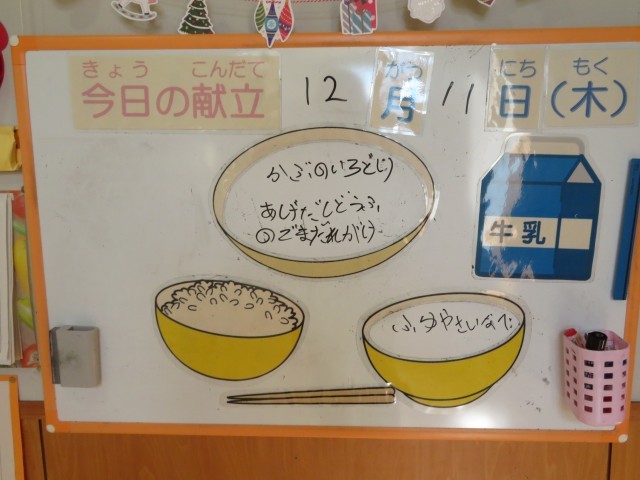 きょう こんだて
今日の献立
がつ にち もく
12月11日(木)
かぶのいろどり
あげだしどうふ
のごまだれがけ
牛乳
ふゆやさいなべ